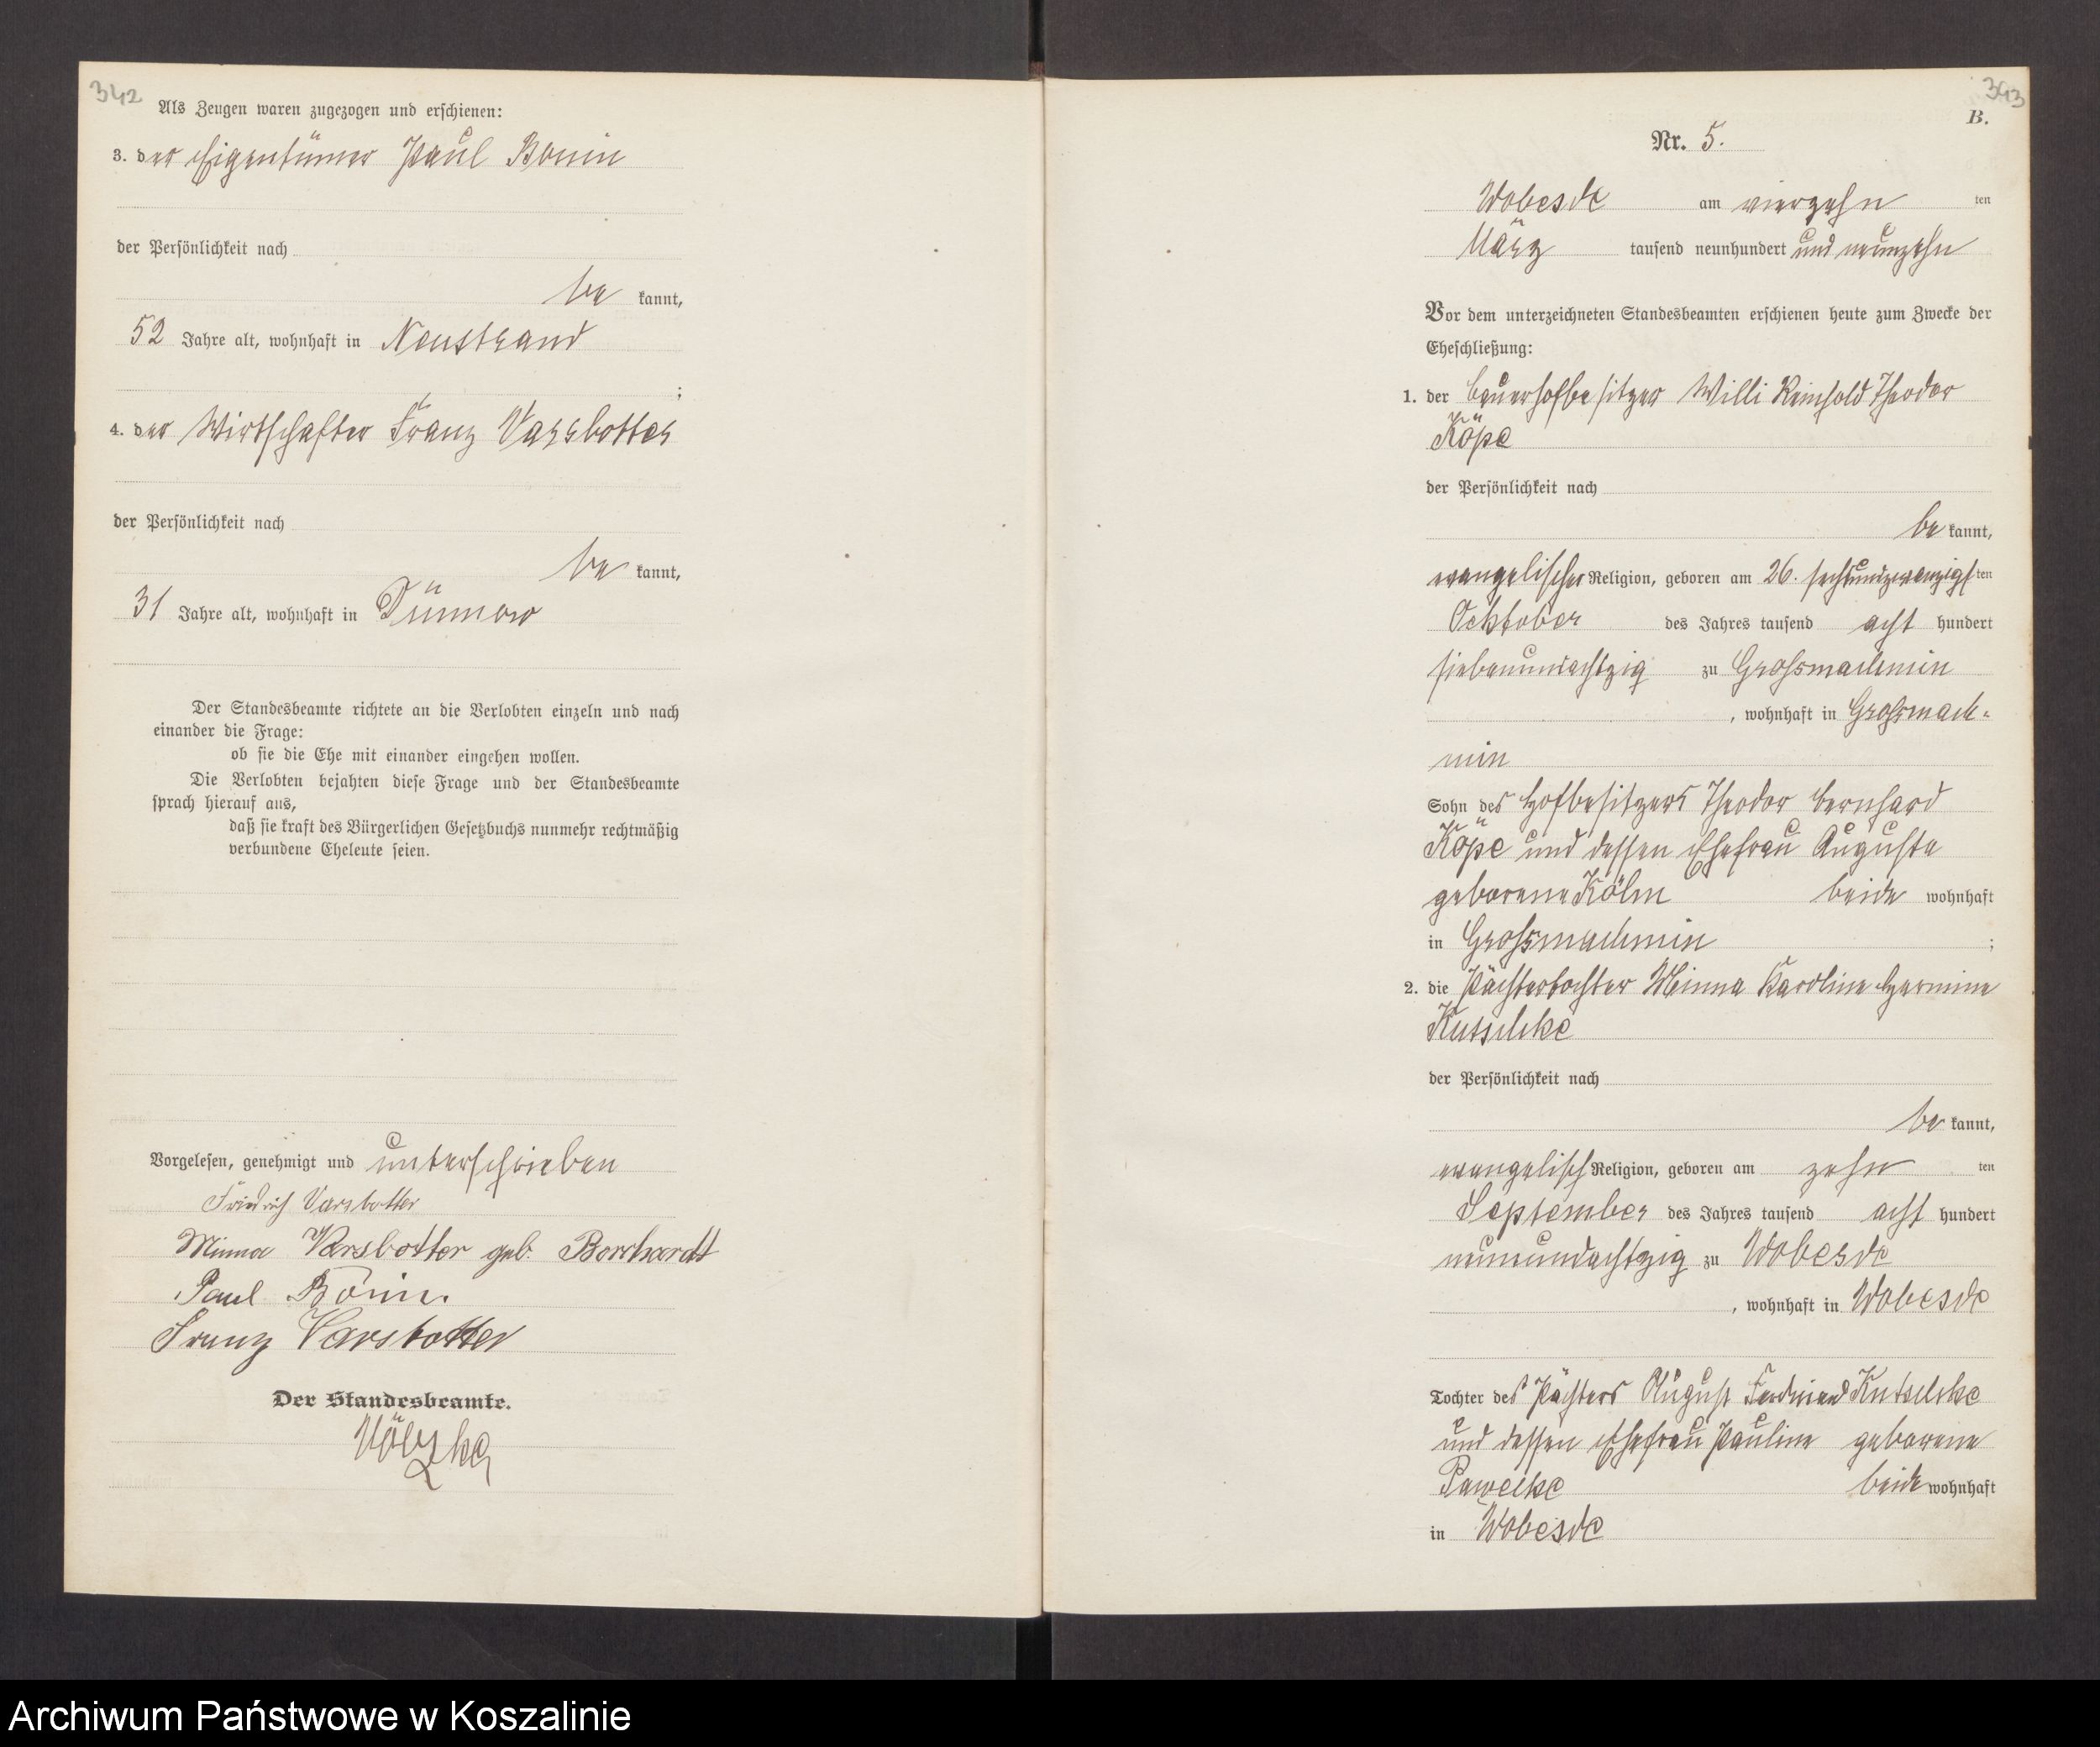 342
Als Zeugen waren zugezogen und erschienen:
3. der Eigentümer Paul Bonin
der Persönlichkeit nach
be kannt,
52 Jahre alt, wohnhaft in Neustrand
;
4. der Wirtschafter Franz Varsbotter
der Persönlichkeit nach
be kannt,
31 Jahre alt, wohnhaft in Dünnow
Der Standesbeamte richtete an die Verlobten einzeln und nach
einander die Frage:
ob sie die Ehe mit einander eingehen wollen.
Die Verlobten bejahten diese Frage und der Standesbeamte
sprach hierauf aus,
daß sie kraft des Bürgerlichen Gesetzbuchs nunmehr rechtmäßig
verbundene Eheleute seien.
Vorgelesen, genehmigt und unterschrieben
Friedrich Varsbotter
Minna Varsbotter geb. Borchardt
Paul Bonin.
Franz Varsbotter
Der Standesbeamte.
343
B.
Nr. 5.
Wobesde am vierzehn ten
März tausend neunhundert und neunzehn
Vor dem unterzeichneten Standesbeamten erschienen heute zum Zwecke der
Eheschließung:
1. der Bauerhofbesitzer Willi Reinhold Theodor
Köpe
der Persönlichkeit nach
be kannt,
evangelischer Religion, geboren am 26. sechsundzwanzigsten
Ocktober des Jahres tausend acht hundert
siebenundachtzig zu Grossmachmin
, wohnhaft in Grossmach-
min
Sohn des Hofbesitzers Theodor Bernhard
Köpe und dessen Ehefrau Auguste
geborene Kölm beide wohnhaft
in Grossmachmin ;
2. die Pächtertochter Minna Karoline Hermine
Kutschke
der Persönlichkeit nach
be kannt,
evangelisch Religion, geboren am zehn ten
September des Jahres tausend acht hundert
neunundachtzig zu Wobesde
, wohnhaft in Wobesde
Tochter des Pächters August Ferdinand Kutschke
und dessen Ehefrau Pauline geborene
Pawelke beide wohnhaft
in Wobesde
Archiwum Państwowe w Koszalinie